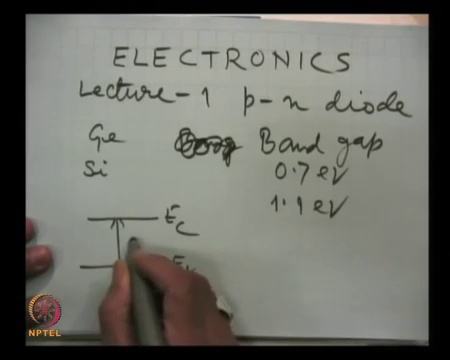 ELECTRONICS
Lecture-1 p-n diode
Ge Band gap
Si 0.7 eV
1.1 eV
E_C
E_V
NPTEL